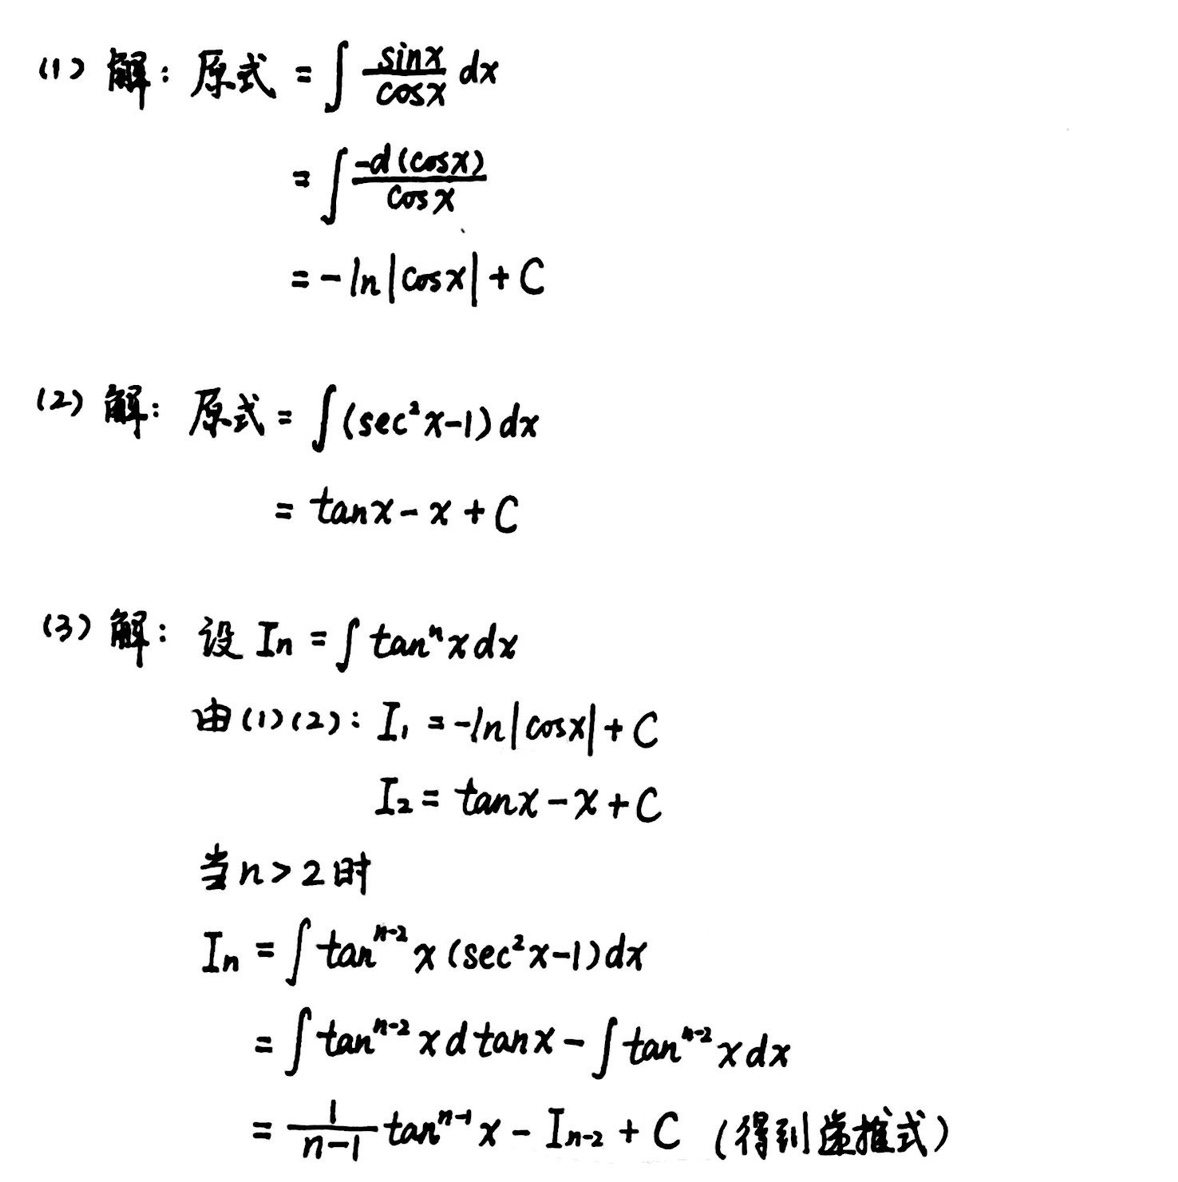 (1) 解：原式 = ∫ sinx/cosx dx
= ∫ -d(cosx)/cosx
= -ln|cosx| + C
(2) 解：原式 = ∫(sec²x-1)dx
= tanx - x + C
(3) 解：设 Iₙ = ∫ tanⁿxdx
由(1)(2)：I₁ = -ln|cosx| + C
I₂ = tanx - x + C
当n>2时
Iₙ = ∫ tanⁿ⁻²x(sec²x-1)dx
= ∫ tanⁿ⁻²xdtanx - ∫ tanⁿ⁻²xdx
= 1/(n-1) tanⁿ⁻¹x - Iₙ₋₂ + C (得到递推式)